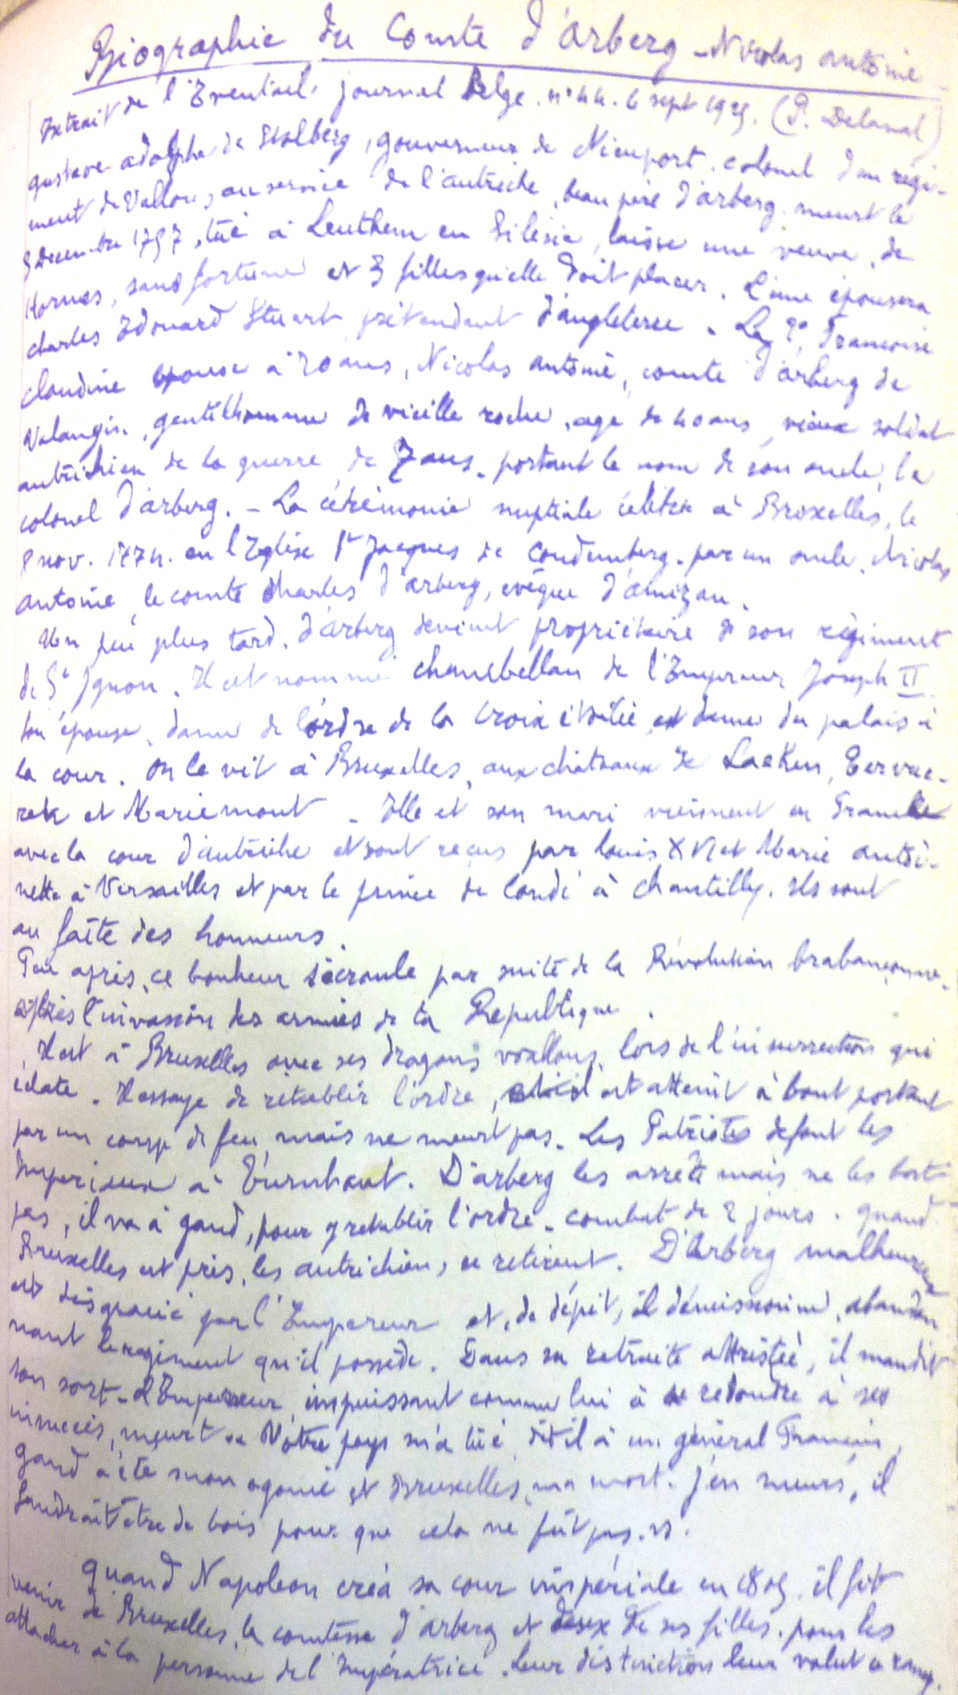 Biographie du Comte d'Arberg - Nicolas Antoine
Extrait de l'Eventail, journal Belge. n° 44. 6 sept 1925. (P. Delaval)
Gustave Adolphe de Stolberg, gouverneur de Nieuport. colonel d'un régi-
ment de Wallons, au service de l'autriche, beau père d'arberg. meurt le
5 Decembre 1757, tué à Leuthem en Silésie, laisse une veuve, de
Hornes, sans fortune et 3 filles qu'elle doit placer. L'une épousera
Charles Edouard Stuart prétendant d'angleterre. La 2°, Francoise
Claudine épouse à 20 ans, Nicolas antoine, comte d'arberg de
Valangin, gentilhomme de vieille roche, age de 40 ans, vieux soldat
autrichien de la guerre de 7 ans. portant le nom de son oncle, le
colonel d'arberg. - La cérémonie nuptiale célébrée à Bruxelles, le
8 nov. 1774. en l'Eglise St Jacques de Coudemberg. par un oncle. Nicolas
antoine, le comte Charles d'arberg, evêque d'amizon.
Un peu plus tard. d'arberg devint propriétaire de son régiment
de St Ignon. Il est nommé chambellan de l'Empereur Joseph II
son épouse, dame de l'ordre de la Croix étoilée, et dame du palais à
la cour. On le vit à Bruxelles, aux châteaux de Laeken, Tervue-
ren et Mariemont - Elle et son mari viennent en France
avec la cour d'autriche et sont reçus par Louis XVI et Marie antoi-
nette à Versailles et par le prince de Condé à Chantilly. Ils sont
au faîte des honneurs.
Peu après, ce bonheur s'écroule par suite de la Révolution brabançonne.
après l'invasion des armées de la République.
Il est à Bruxelles avec ses dragons wallons, lors de l'insurrection qui
éclate. Il essaye de rétablir l'ordre, il est atteint à bout portant
par un coup de feu, mais ne meurt pas. Les Patriotes defont les
Imperiaux à Turnhout. D'arberg les arrête mais ne les bat
pas, il va à gand, pour y retablir l'ordre. combat de 2 jours. quand
Bruxelles est pris, les autrichiens se retirent. D'Arberg malheureux
est disgracié par l'Empereur et, de dépit, il démissionne, abandon
nant le regiment qu'il possède. Dans sa retraite attristée, il maudit
son sort. L'Empereur, impuissant comme lui à se résoudre à ses
insuccès, meurt. « Votre pays m'a tué, dit il à un général Francais,
gand a été mon agonie et Bruxelles, ma mort. J'en meurs, il
faudrait être de bois pour que cela ne fût pas. ».
Quand Napoleon créa sa cour impériale en 1805, il fit
venir de Bruxelles, la comtesse d'arberg et deux de ses filles. pour les
attacher à la personne de l'Impératrice. Leur distinction leur valut ce rang.